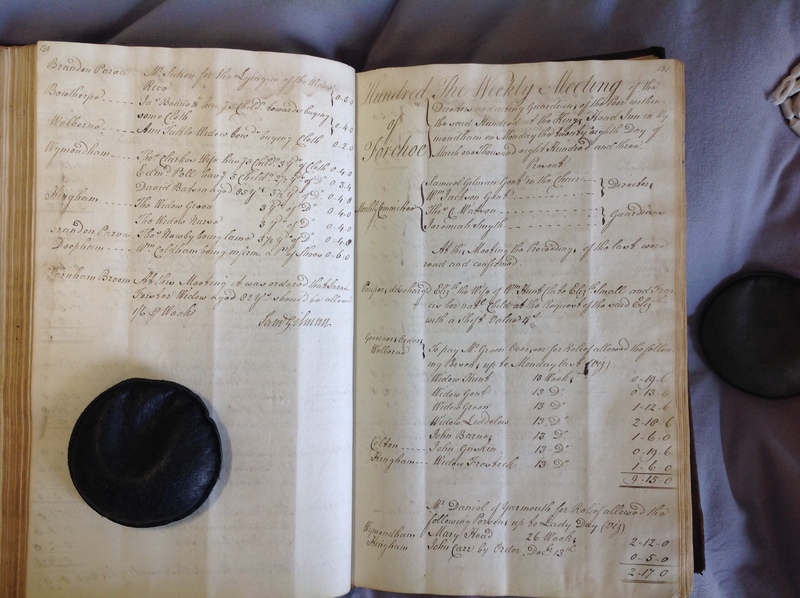 130
Brandon Parva Mr. Sutton for the Lying in of the Widow
Rico 0-5-0
Bowthorpe Jas. Bunn & bro. 7 Childn. towards buying
some Cloth 0-4-0
Welborne Ann Tuddle Widow towds. buying Cloth 0-2-0
Wymondham Thos. Clarkes Wife has 5 Childn. 3 yds. of Cloth 0-4-0
Edmd. Pall has 5 Childn. 2½ yds. of Do. 0-3-4
David Batson aged 85 yrs. 3½ yds. of Do. 0-4-0
Hingham The Widow Green 3 yds. of Do. 0-4-0
The Widow Nurse 3 yds. of Do. 0-4-0
Brandon Parva Thos. Howsby being lame 3½ yds. of Do. 0-4-0
Deopham Wm. Coldham being infirm a Pr. of Shoes 0-6-0
Barnham Broom At this Meeting it was ordered that Sarah
Widow aged 82 yrs. should be allowed
1/6 p Week
Saml. Gilman
131
Hundred of Forehoe The Weekly Meeting of the
Directors and acting Guardians of the Poor within
the said Hundred at the Kings Head Inn in Wy
mondham on Monday the twenty eighth Day of
March one Thousand eight Hundred and three
Present
Weekly Committee
Samuel Gilman Gent. in the Chair
Wm. Jackson Gent. Directors
Thos. Watson
Jeremiah Smyth Guardians
At this Meeting the Proceedings of the last were
read and confirmed
Pauper discharged Elizth. the Wife of Wm. Hunt Elizth. Small and Fran
cis her natl. Child at the Request of the said Elizth.
with a Shift Value 4s.
Governor Orders
Welborne To pay Mr. Green Overseer for Relief allowed the follow
ing Persons up to Monday last (Viz)
Widow Hunt 13 Weeks 0-19-6
Widow Gent 13 Do. 0-13-0
Widow Green 13 Do. 1-12-6
Widow Liddelow 13 Do. 2-18-6
John Barnes 13 Do. 1-6-0
Colton John Gaskin 13 Do. 0-19-6
Hingham Widow Frosbeck 13 Do. 1-6-0
9-15-0
Mr. Daniel of Yarmouth for Relief allowed the
following Persons up to Lady Day (Viz)
Wymondham Mary Head 26 Weeks 2-12-0
Hingham John Carr by Order Decr. 13th. 0-5-0
2-17-0